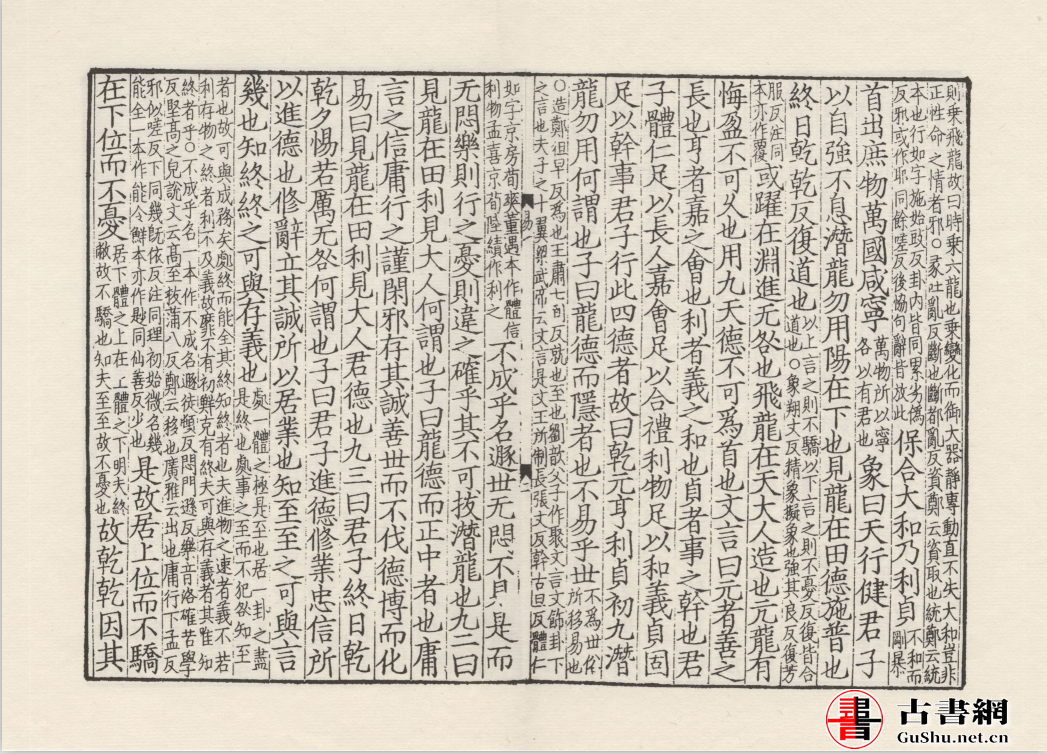 則乗飛龍故曰時乗六龍也乗變化而御大器靜專動直不失大和豈非
正性命之情者邪○彖吐亂反斷也斷都亂反資鄭云資取也統鄭云統
本也行如字施始豉反卦內皆同累劣僞反邪或作耶同餘嗟反後協句辭皆放此保合大和乃利貞不和而剛暴
首出庶物萬國咸寧萬物所以寧各以有君也象曰天行健君子
以自強不息潜龍勿用陽在下也見龍在田德施普也
終日乾乾反復道也以上言之則不驕以下言之則不憂反復皆合道也○象翔丈反精象擬象也強其良反復芳
服反注同本亦作覆或躍在淵進无咎也飛龍在天大人造也亢龍有
悔盈不可久也用九天德不可爲首也文言曰元者善之
長也亨者嘉之會也利者義之和也貞者事之幹也君
子體仁足以長人嘉會足以合禮利物足以和義貞固
足以幹事君子行此四德者故曰乾元亨利貞初九潜
龍勿用何謂也子曰龍德而隱者也不易乎世不爲世俗所移易也
○造鄭徂早反爲也王肅七到反就也至也劉歆父子作聚文言文飾卦下
之言也夫子之十翼梁武帝云文言是文王所制長張丈反幹古旦反體仁
易一
二
如字京房荀爽董遇本作體信利物孟喜京荀陸績作利之不成乎名遯世无悶不見是而
无悶樂則行之憂則違之確乎其不可拔潜龍也九二曰
見龍在田利見大人何謂也子曰龍德而正中者也庸
言之信庸行之謹閑邪存其誠善世而不伐德博而化
易曰見龍在田利見大人君德也九三曰君子終日乾
乾夕惕若厲无咎何謂也子曰君子進德修業忠信所
以進德也修辭立其誠所以居業也知至至之可與言
幾也知終終之可與存義也處一體之極是至也居一卦之盡是終也處事之至而不犯咎知至
者也故可與成務矣處終而能全其終知終者也夫進物之速者義不若
利存物之終者利不及義故靡不有初鮮克有終夫可與存義者其唯知
終者乎○不成乎名一本作不成名遯徒頓反悶門遜反樂音洛確苦學
反堅高之皃說文云高至拔蒲八反鄭云移也廣雅云出也庸行下孟反
邪似嗟反下同幾既依反注同理初始微名幾
能全一本作能令鮮本亦作尟同仙善反少也是故居上位而不驕
在下位而不憂居下體之上在上體之下明夫終敝故不驕也知夫至至故不憂也故乾乾因其
書
古書網
GuShu.net.cn